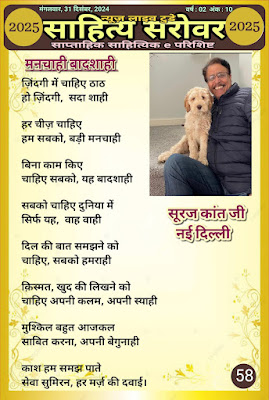 मंगलवार, 31 दिसंबर, 2024
वर्ष : 02 अंक : 10
न्यूज़ लाइव टुडे
2025 साहित्य सरोवर 2025
साप्ताहिक साहित्यिक e परिशिष्ट
मनचाही बादशाही
ज़िंदगी में चाहिए ठाठ
हो ज़िंदगी, सदा शाही
हर चीज़ चाहिए
हम सबको, बड़ी मनचाही
बिना काम किए
चाहिए सबको, यह बादशाही
सबको चाहिए दुनिया में
सिर्फ यह, वाह वाही
दिल की बात समझने को
चाहिए, सबको हमराही
क़िस्मत, खुद की लिखने को
चाहिए अपनी कलम, अपनी स्याही
मुश्किल बहुत आजकल
साबित करना, अपनी बेगुनाही
काश हम समझ पाते
सेवा सुमिरन, हर मर्ज़ की दवाई।
सूरज कांत जी
नई दिल्ली
58